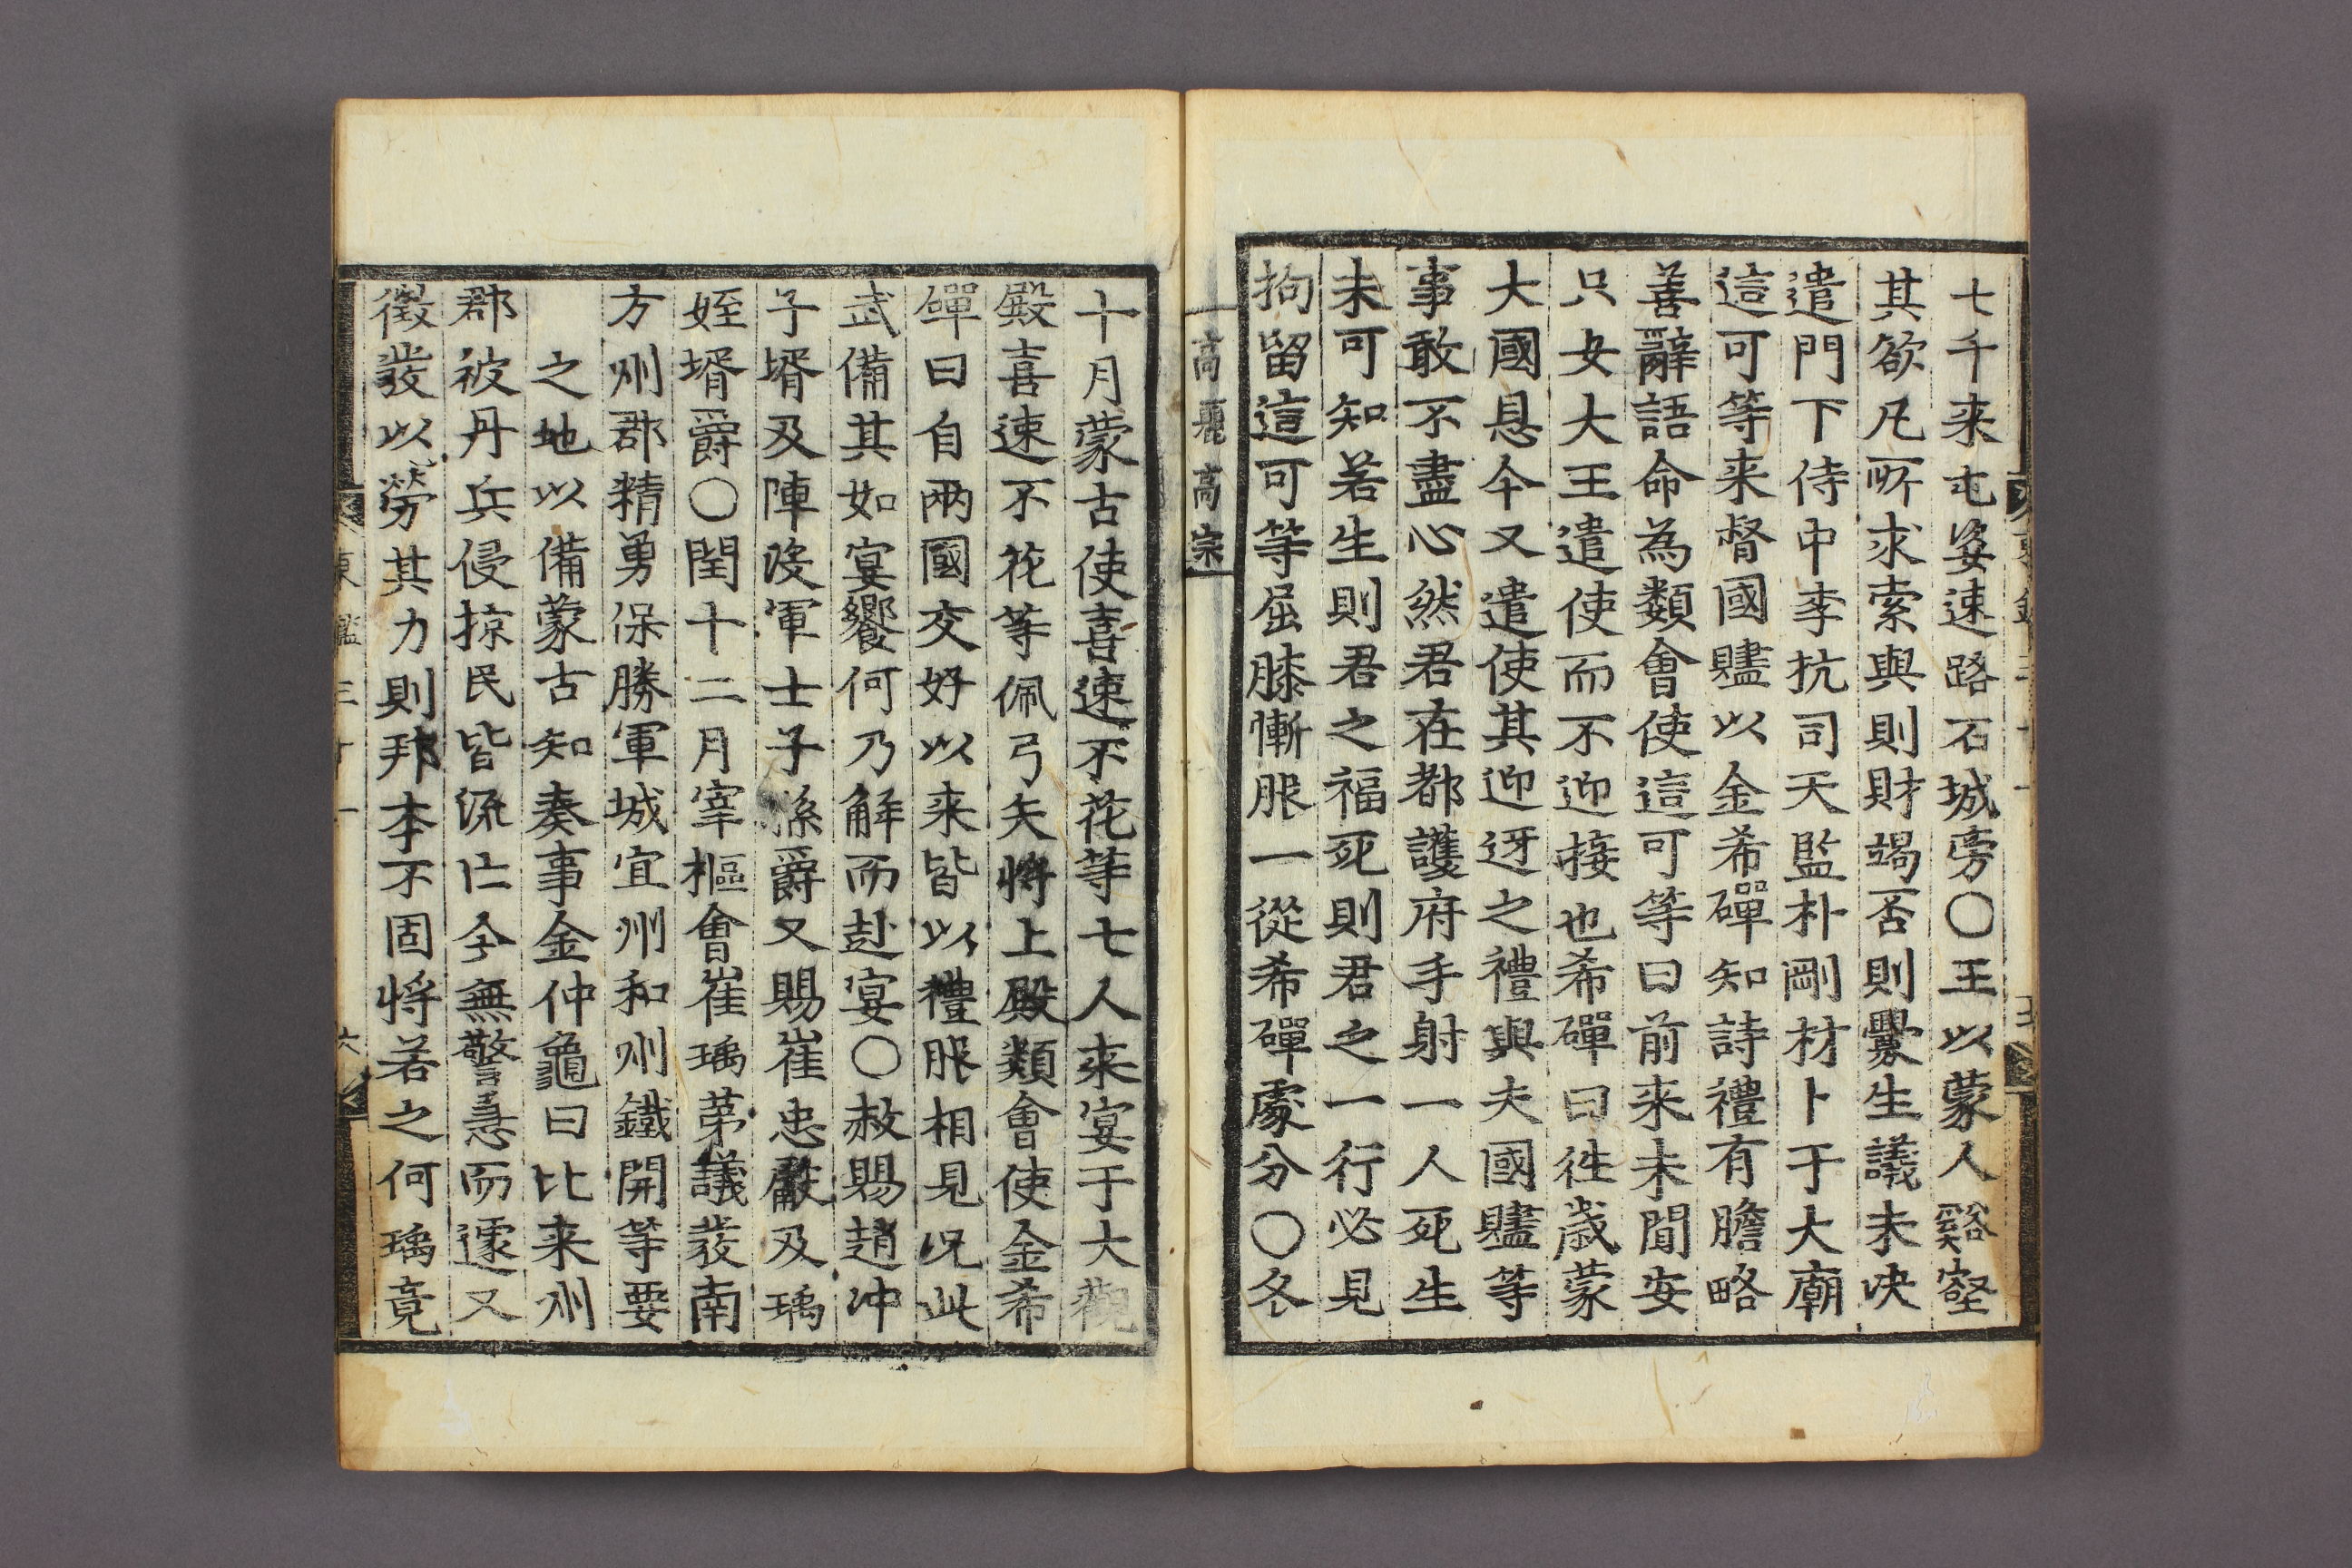 七千来屯娑速路石城旁○王以蒙人谿壑
其欲凡所求索與則財竭否則釁生議未决
遣門下侍中李抗司天監朴剛材卜于大廟
這可等来督國贐以金希磾知詩禮有膽略
善辭語命為類會使這可等曰前来未聞安
只女大王遣使而不迎接也希磾曰徃歳蒙
大國恩今又遣使其迎迓之禮與夫國贐等
事敢不盡心然君在都護府手射一人死生
未可知若生則君之福死則君之一行必見
拘留這可等屈膝慚服一從希磾處分○冬
高麗高宗
十月蒙古使喜速不花等七人来宴于大觀
殿喜速不花等佩弓矢將上殿類會使金希
磾曰自兩國交好以来皆以禮服相見况此
武備其如宴饗何乃解而赴宴○赦賜趙冲
子壻及陣沒軍士子孫爵又賜崔忠獻及瑀
姪壻爵○閏十二月宰樞會崔瑀第議發南
方州郡精勇保勝軍城宜州和州鐵開等要
之地以備蒙古知奏事金仲龜曰比来州
郡被丹兵侵掠民皆流亡今無警急而遽又
徵發以勞其力則邦本不固將若之何瑀竟
東鑑三十一
六